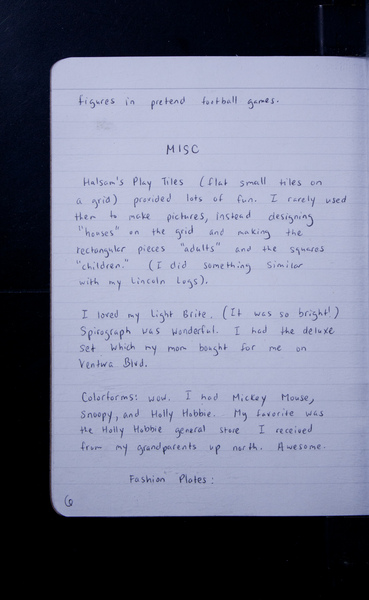 figures in pretend football games.
MISC
Halsam's Play Tiles (flat small tiles on
a grid) provided lots of fun. I rarely used
them to make pictures, instead designing
"houses" on the grid and making the
rectangular pieces "adults" and the squares
"children." (I did something similar
with my Lincoln Logs).
I loved my Light Brite. (It was so bright!)
Spirograph was wonderful. I had the deluxe
set which my mom bought for me on
Ventura Blvd.
Colorforms: wow. I had Mickey Mouse,
Snoopy, and Holly Hobbie. My favorite was
the Holly Hobbie general store I received
from my grandparents up north. Awesome.
Fashion Plates:
6